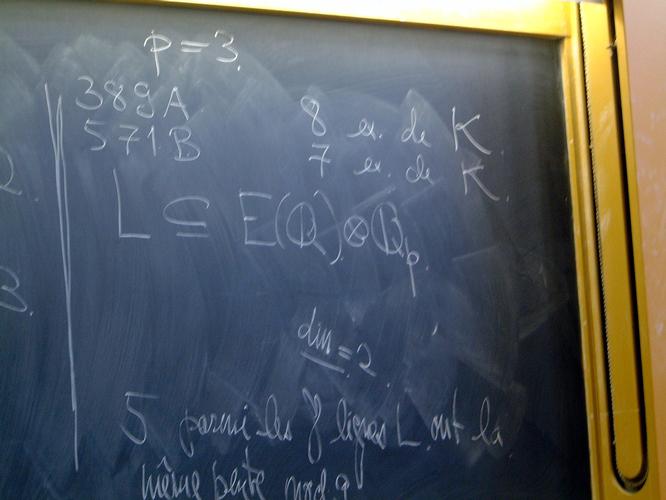 p = 3.
389A 8 ex. de K.
571.B 7 ex. de K.
L ⊆ E(ℚ) ⊗ ℚp
dim = 2
5 parmi les 8 lignes L ont la
même pente mod. 9